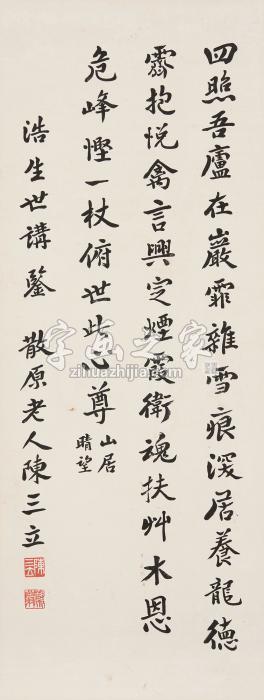 四照吾廬在巖霏雜雪痕深居養龍德
霽抱悅禽言興定煙霞衛魂扶艸木恩
危峰慳一杖俯世此心尊
山居
晴望
浩生世講鑒 散原老人陳三立
字画之家
zihuazhijia.com